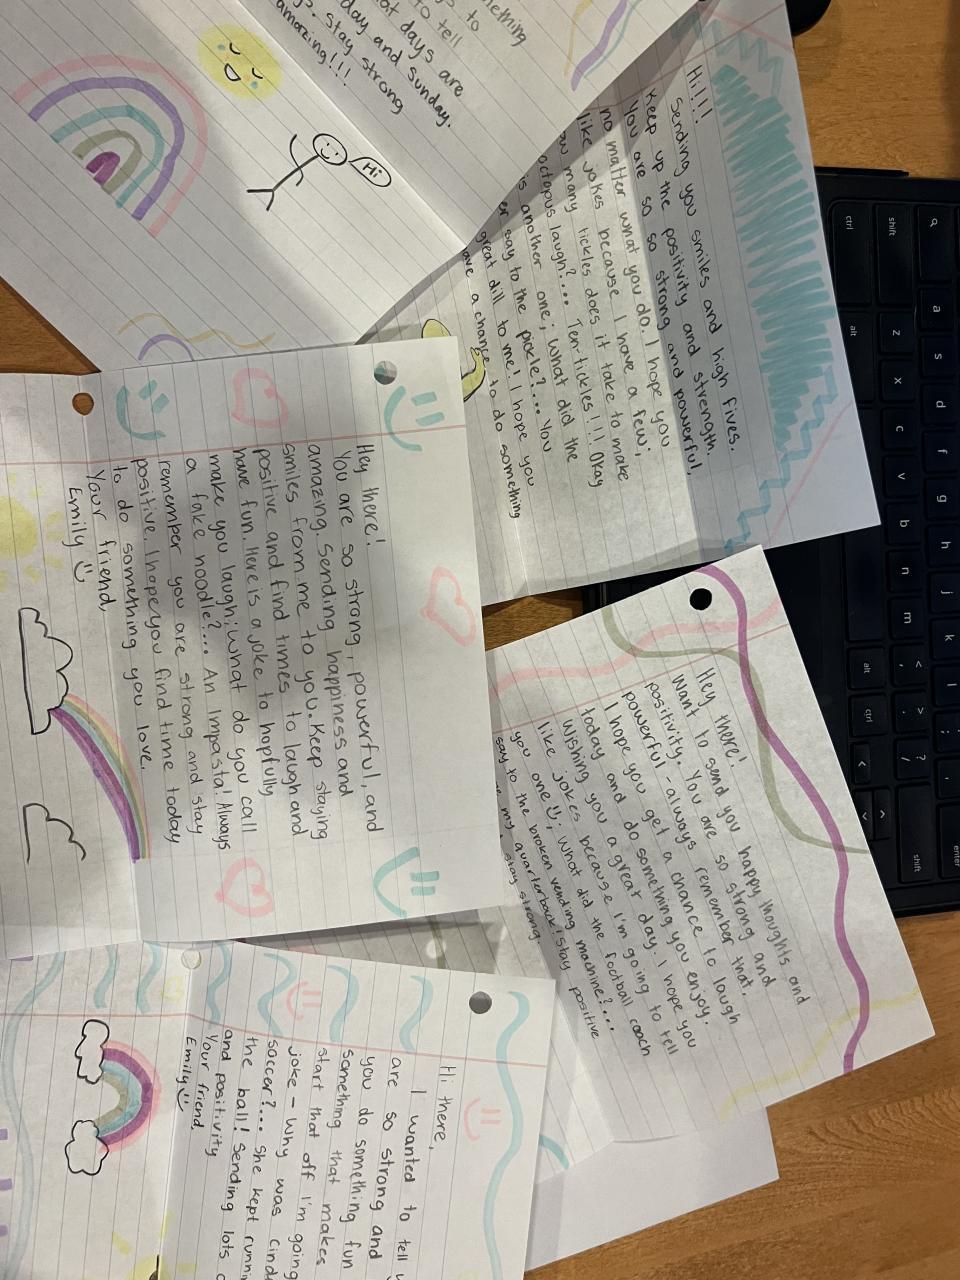 mething
to
to tell
at days are
day and sunday.
stay strong
amazing!!!
Hi
Hi!!!
Sending you smiles and high fives.
Keep up the positivity and strength.
You are so so strong and powerful,
no matter what you do. I hope you
like jokes because I have a few;
ow many tickles does it take to make
octopus laugh?... Ten-tickles!!! Okay
is another one; What did the
er say to the pickle?... You
great dill to me! I hope you
ave a chance to do something
Hey there!
You are so strong, powerful, and
amazing. Sending happiness and
smiles from me to you. Keep staying
positive and find times to laugh and
have fun. Here is a joke to hopfully
make you laugh: What do you call
a fake noodle?... An Impasta! Always
remember you are strong and stay
positive. I hope you find time today
to do something you love.
Your friend,
Emily
Hey there!
Want to send you happy thoughts and
positivity. You are so strong and
powerful - always remember that.
I hope you get a chance to lough
today and do something you enjoy.
Wishing you a great day. I hope you
like jokes because I'm going to tell
you one; What did the football coach
say to the broken vending machine?...
me my quarterback! Stay positive
stay strong.
Hi there,
I wanted to tell y
are so strong and
you do something fun
something that makes
start that off I'm going
joke - Why was cind
soccer?... She kept runnin
the ball! Sending lots o
and positivity
Your friend,
Emily
ctrl
shift
Q
alt
z
a
x
s
c
d
v
f
b
g
n
h
m
j
alt
ctrl
<
,
k
>
.
l
?
/
:
;
shift
enter